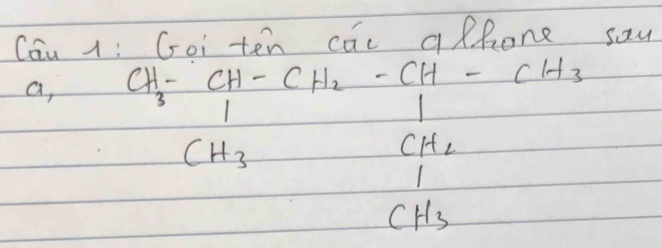 Câu 1: Gọi tên các alkane sau
a, CH3- CH - CH2 - CH - CH3
| |
CH3 CH2
|
CH3